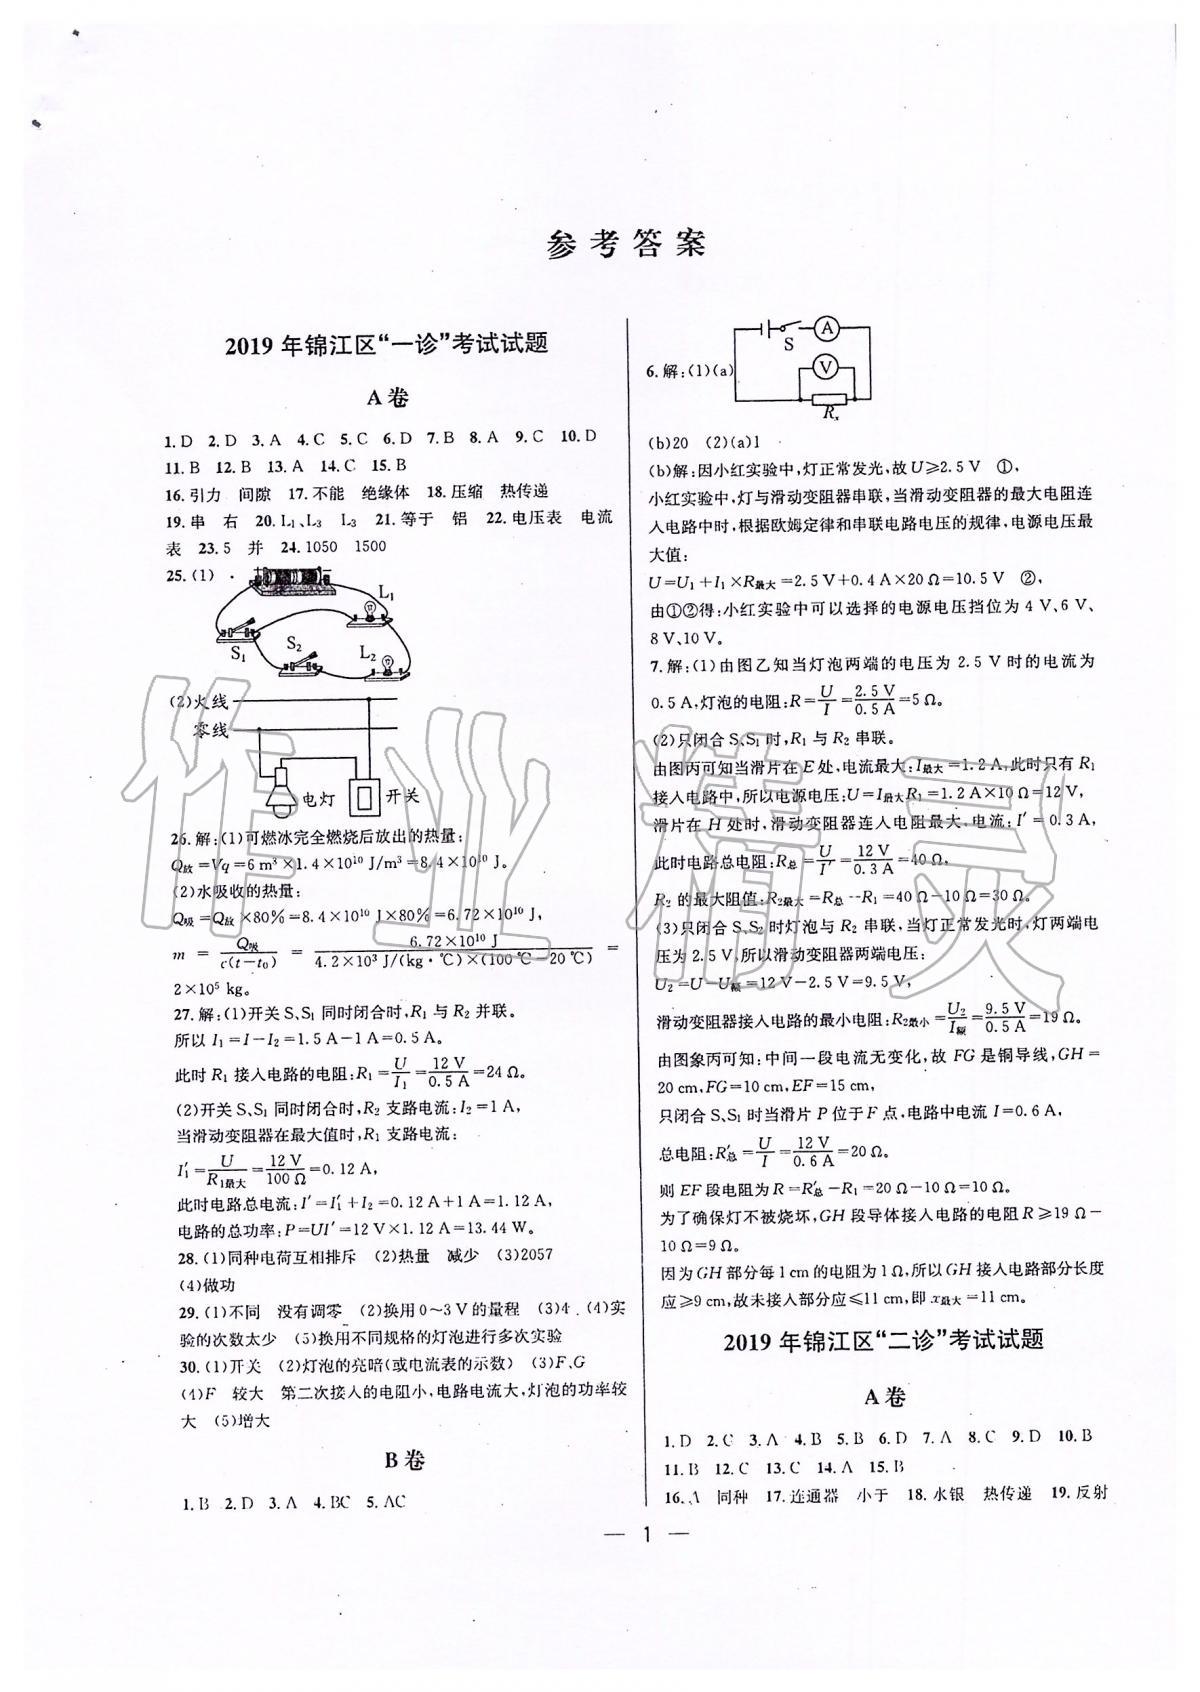 参考答案
2019年锦江区“一诊”考试试题
A卷
1.D 2.D 3.A 4.C 5.C 6.D 7.B 8.A 9.C 10.D
11.B 12.B 13.A 14.C 15.B
16.引力 间隙 17.不能 绝缘体 18.压缩 热传递
19.串 右 20.L₁、L₃ L₃ 21.等于 铝 22.电压表 电流
表 23.5 并 24.1050 1500
25.(1)
L₁
S₁
S₂
L₂
(2)火线
零线
电灯
开关
26.解:(1)可燃冰完全燃烧后放出的热量:
Q放=Vq=6 m³×1.4×10¹⁰ J/m³=8.4×10¹⁰ J。
(2)水吸收的热量:
Q吸=Q放×80%=8.4×10¹⁰ J×80%=6.72×10¹⁰ J,
m=Q吸/c(t-t₀)=6.72×10¹⁰ J/4.2×10³ J/(kg·℃)×(100 ℃-20 ℃)=
2×10⁵ kg。
27.解:(1)开关S、S₁同时闭合时,R₁与R₂并联。
所以I₁=I-I₂=1.5 A-1 A=0.5 A。
此时R₁接入电路的电阻:R₁=U/I₁=12 V/0.5 A=24 Ω。
(2)开关S、S₁同时闭合时,R₂支路电流:I₂=1 A,
当滑动变阻器在最大值时,R₁支路电流:
I₁′=U/R₁最大=12 V/100 Ω=0.12 A,
此时电路总电流:I′=I₁′+I₂=0.12 A+1 A=1.12 A,
电路的总功率:P=UI′=12 V×1.12 A=13.44 W。
28.(1)同种电荷互相排斥 (2)热量 减少 (3)2057
(4)做功
29.(1)不同 没有调零 (2)换用0~3 V的量程 (3)4 (4)实
验的次数太少 (5)换用不同规格的灯泡进行多次实验
30.(1)开关 (2)灯泡的亮暗(或电流表的示数) (3)F、G
(4)F 较大 第二次接入的电阻小,电路电流大,灯泡的功率较
大 (5)增大
B卷
1.B 2.D 3.A 4.BC 5.AC
6.解:(1)(a)
S
A
V
Rₓ
(b)20 (2)(a)1
(b)解:因小红实验中,灯正常发光,故U≥2.5 V ①,
小红实验中,灯与滑动变阻器串联,当滑动变阻器的最大电阻连
入电路中时,根据欧姆定律和串联电路电压的规律,电源电压最
大值:
U=U₁+I₁×R最大=2.5 V+0.4 A×20 Ω=10.5 V ②,
由①②得:小红实验中可以选择的电源电压挡位为4 V、6 V、
8 V、10 V。
7.解:(1)由图乙知当灯泡两端的电压为2.5 V时的电流为
0.5 A,灯泡的电阻:R=U/I=2.5 V/0.5 A=5 Ω。
(2)只闭合S、S₁时,R₁与R₂串联。
由图丙可知当滑片在E处,电流最大:I最大=1.2 A,此时只有R₁
接入电路中,所以电源电压:U=I最大R₁=1.2 A×10 Ω=12 V,
滑片在H处时,滑动变阻器连入电阻最大,电流:I′=0.3 A,
此时电路总电阻:R总=U/I′=12 V/0.3 A=40 Ω,
R₂的最大阻值:R₂最大=R总-R₁=40 Ω-10 Ω=30 Ω。
(3)只闭合S、S₂时灯泡与R₂串联,当灯正常发光时,灯两端电
压为2.5 V,所以滑动变阻器两端电压:
U₂=U-U额=12 V-2.5 V=9.5 V,
滑动变阻器接入电路的最小电阻:R₂最小=U₂/I额=9.5 V/0.5 A=19 Ω。
由图象丙可知:中间一段电流无变化,故FG是铜导线,GH=
20 cm,FG=10 cm,EF=15 cm,
只闭合S、S₁时当滑片P位于F点,电路中电流I=0.6 A,
总电阻:R总′=U/I=12 V/0.6 A=20 Ω。
则EF段电阻为R=R总′-R₁=20 Ω-10 Ω=10 Ω。
为了确保灯不被烧坏,GH段导体接入电路的电阻R≥19 Ω-
10 Ω=9 Ω。
因为GH部分每1 cm的电阻为1 Ω,所以GH接入电路部分长度
应≥9 cm,故未接入部分应≤11 cm,即x最大=11 cm。
2019年锦江区“二诊”考试试题
A卷
1.D 2.C 3.A 4.B 5.B 6.D 7.A 8.C 9.D 10.B
11.B 12.C 13.C 14.A 15.B
16.A 同种 17.连通器 小于 18.水银 热传递 19.反射
— 1 —
作业精灵